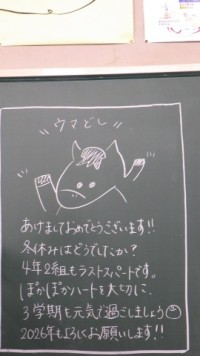 ウマどし
あけましておめでとうございます!!
冬休みはどうでしたか?
4年2組もラストスパートです。
ぽかぽかハートを大切に、
3学期も元気で過ごしましょう
2026年もよろしくお願いします!!